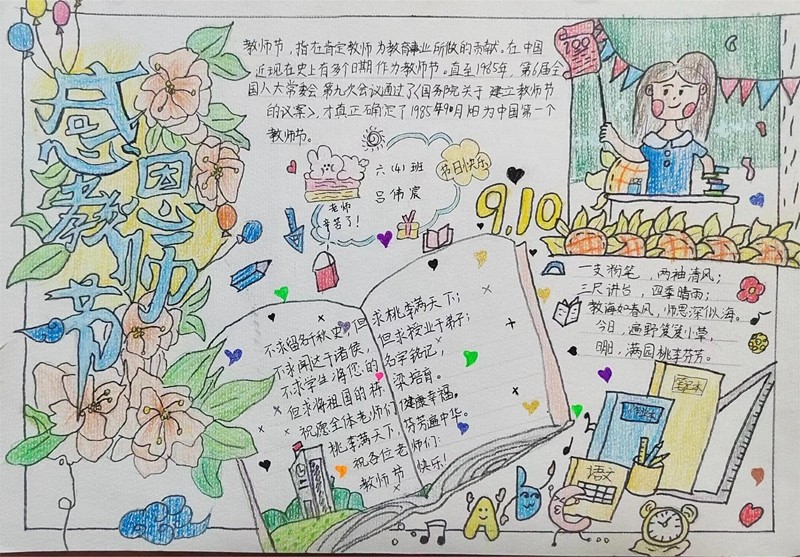 感恩教师节
教师节，指在肯定教师为教育事业所做的贡献。在中国
近现在史上有多个日期作为教师节。直至1985年，第6届全
国人大常委会第九次会议通过了《国务院关于建立教师节
的议案》，才真正确定了1985年9月10日为中国第一个
教师节。
六（4）班
吕伟宸
节日快乐
老师
辛苦了！
9.10
100
一支粉笔，两袖清风；
三尺讲台，四季晴雨；
教海如春风，师恩深似海。
今日，
明朝，满园桃李芬芳。
不求留名千秋史，但求桃李满天下；
不求闻达于诸侯，但求授业于弟子；
不求学生将您的名字铭记，
但求将祖国的栋梁培育。
祝愿全体老师们健康幸福。
桃李满天下，芬芳遍中华。
祝各位老师们：
教师节快乐！
语文
A b C